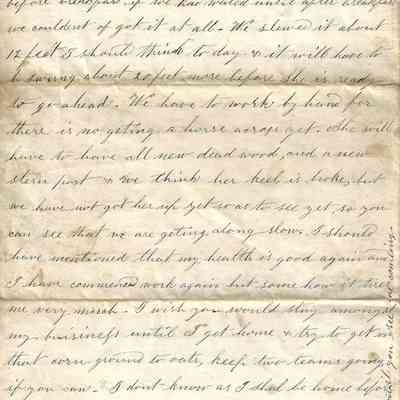 before breakfast if we had waited until after breakfast
we couldent of got it at all. We slewed it about
12 feet I should think to day & it will have to
be swing about 20 feet more before she is ready
to go ahead. We have to work by hand for
there is no geting a horse across yet. She will
have to have all new dead wood, and a new
stern post & we think her keel is broke, but
we have not got her up yet so as to see yet, so you
can see that we are geting along slow. I should
have mentioned that my health is good again and
I have commenced work again but some how it tires
me very much. I wish you would stay amongst
my buisiness until I get home & try to get in
that corn ground to oats, keep two teams going
if you can. I dont know as I shal be home before